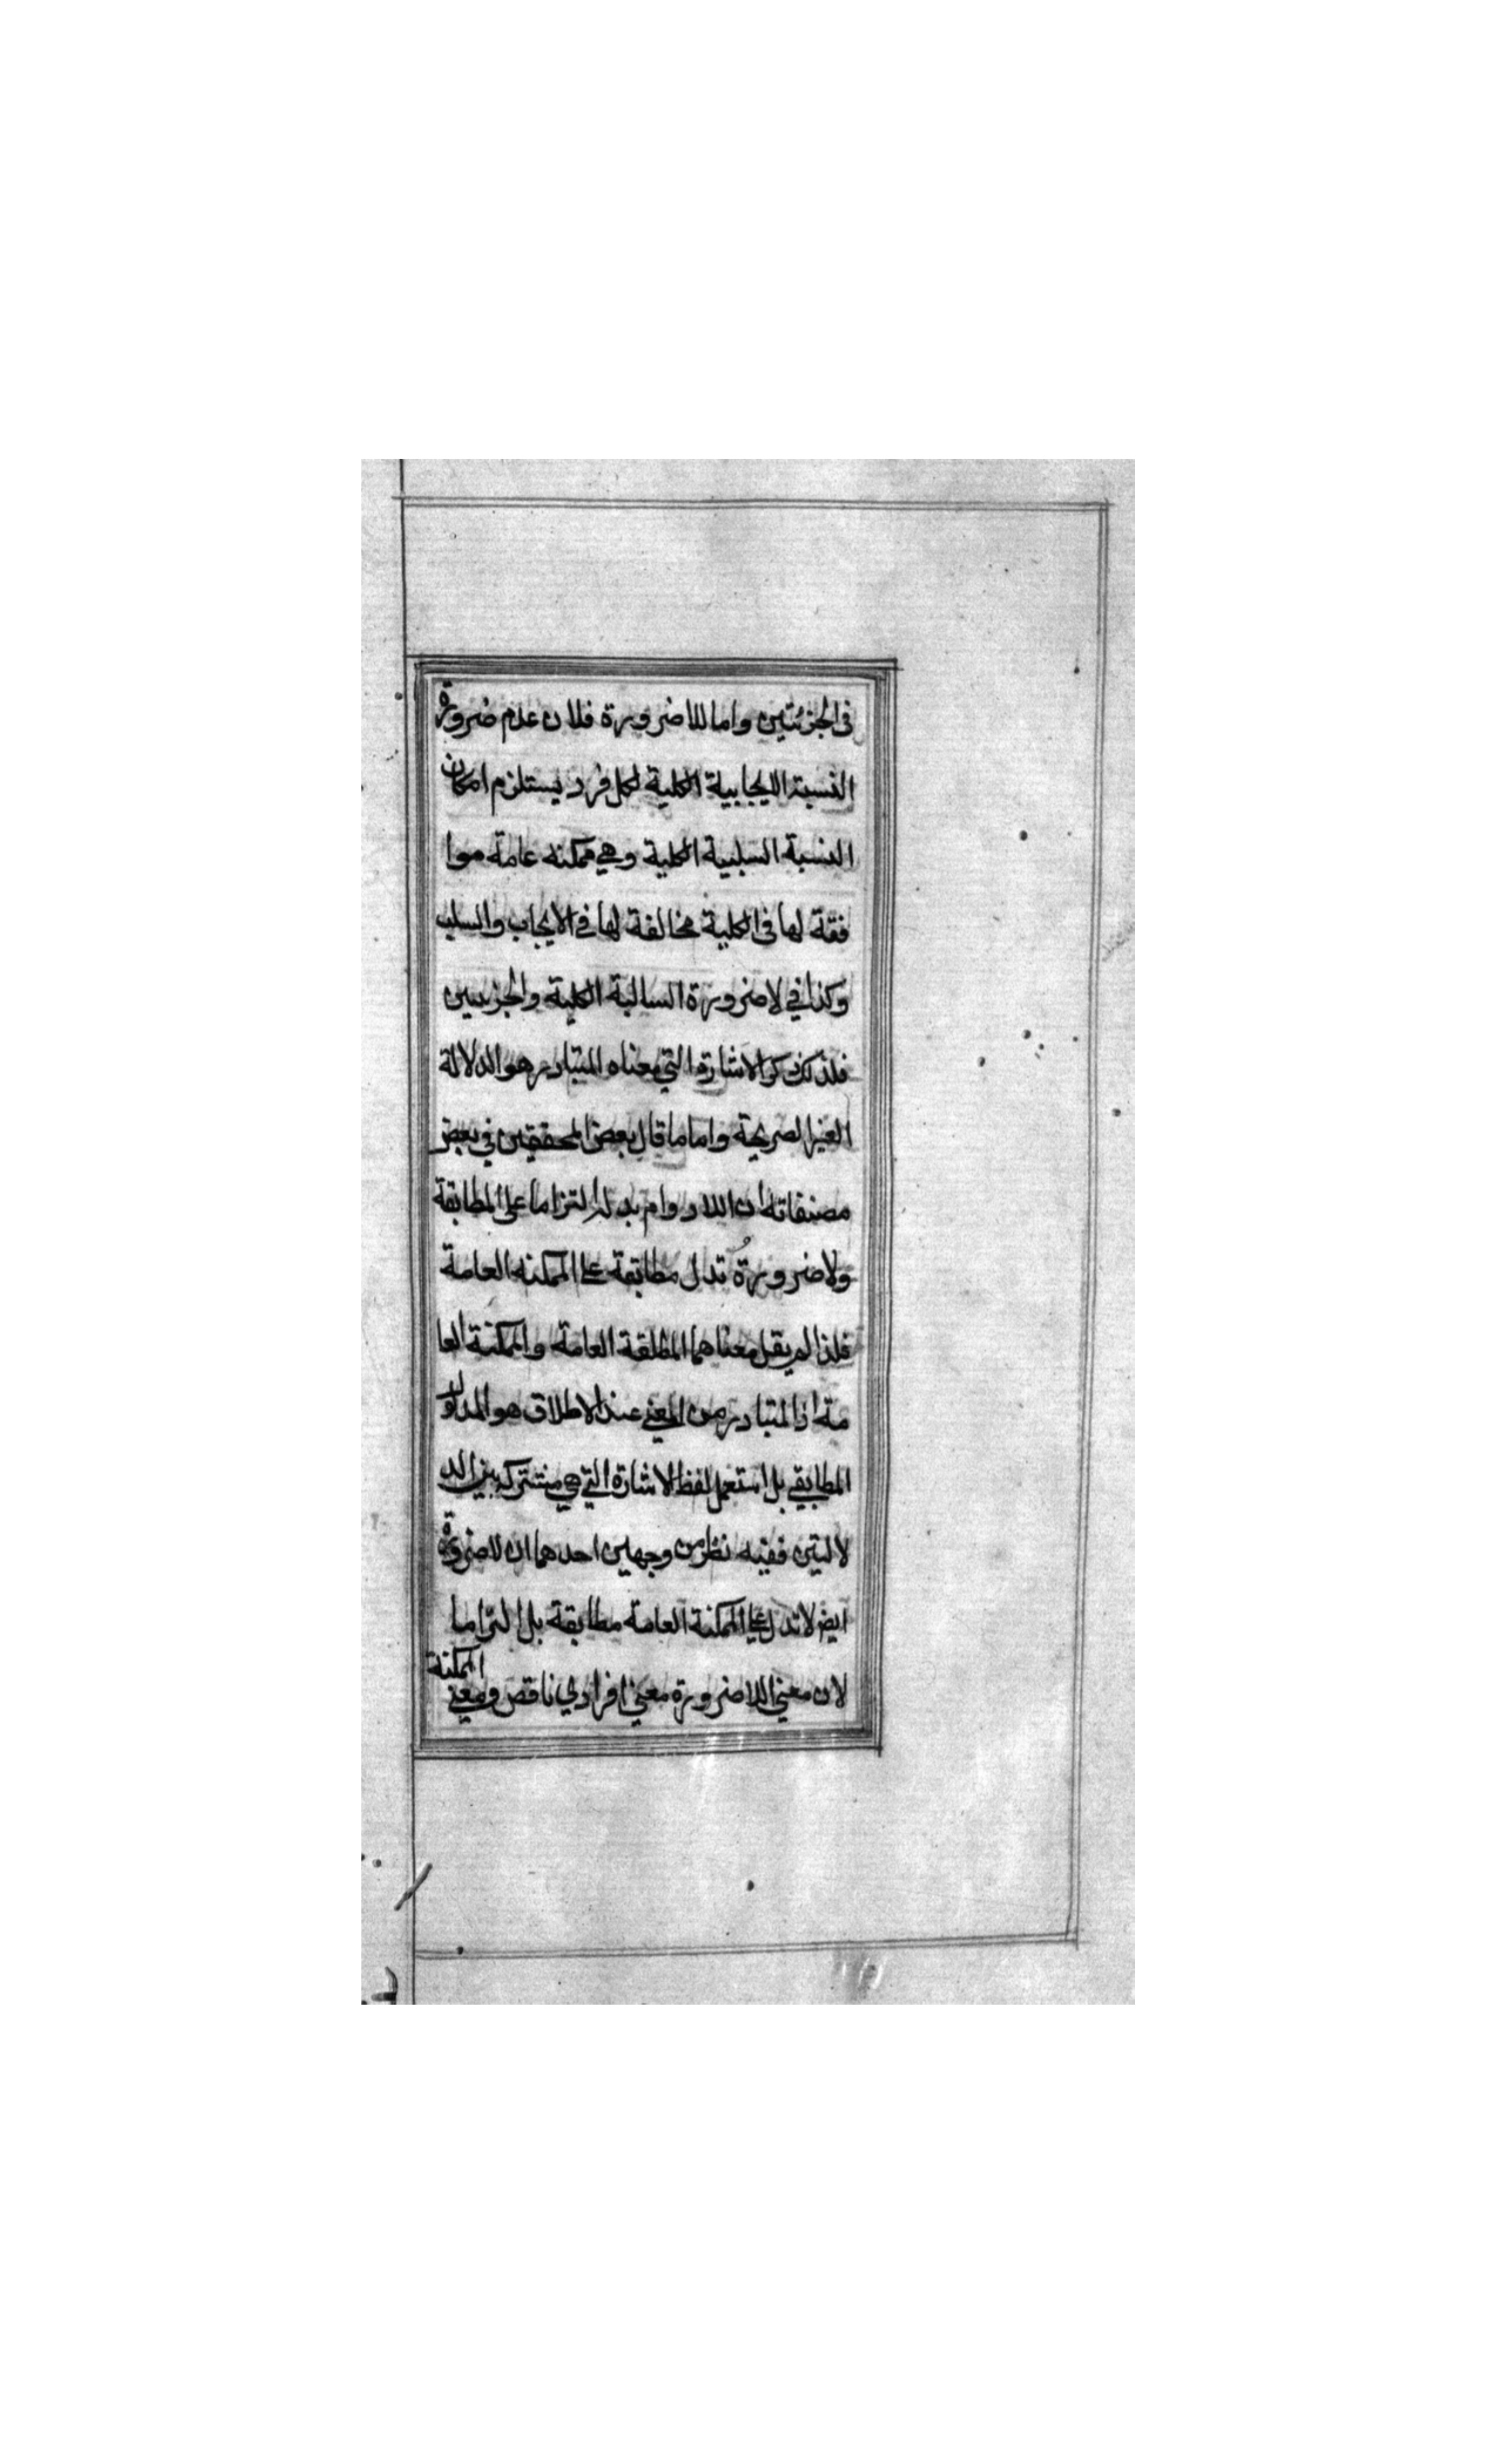 فى الجزئتين واما للاضرورة فلان عدم ضرورة
النسبة الايجابية الكلية لكل فرد يستلزم امكان
النسبة السلبية الكلية وهي ممكنه عامة موا
فقة لها فى الكلية مخالفة لها في الايجاب والسلب
وكذا في لاضرورة السالبة الكلية والجزيين
فلذلك ذكر الاشارة التي معناه المتبادر هو الدلالة
الغير الصريحة واما ما قال بعض المحققين في بعض
مصنفاته ان اللادوام يدل التزاما على المطابقة
ولاضرورة تدل مطابقة على الممكنه العامة
فلذا لم يقل معناهما المطلقة العامة والممكنة العا
مة اذ المتبادر من المعنى عند الاطلاق هو المدلول
المطابقي بل استعمل لفظ الاشارة التي هي مشتركة بين الد
لالتين ففيه نظر من وجهين احدهما ان لاضرورة
ايضا لا تدل على الممكنة العامة مطابقة بل التزاما
لان معني اللاضرورة معني افرادي ناقص ومعني الممكنة